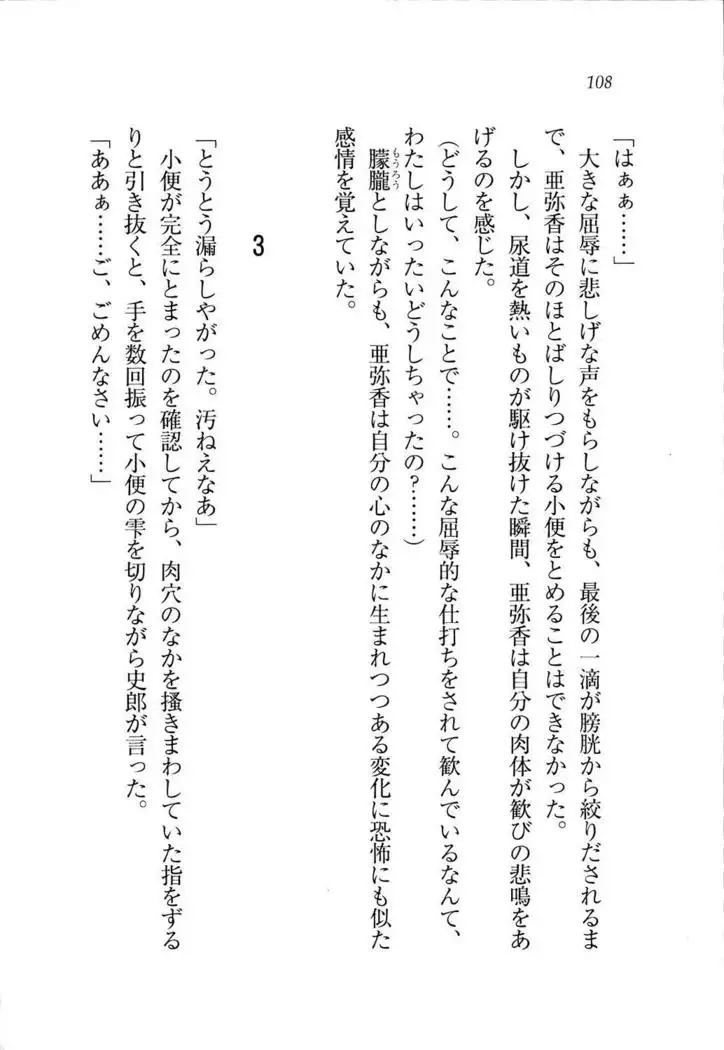 108
「はぁぁ……」
大きな屈辱に悲しげな声をもらしながらも、最後の一滴が膀胱から絞りだされるま
で、亜弥香はそのほとばしりつづける小便をとめることはできなかった。
しかし、尿道を熱いものが駆け抜けた瞬間、亜弥香は自分の肉体が歓びの悲鳴をあ
げるのを感じた。
(どうして、こんなことで……。こんな屈辱的な仕打ちをされて歓んでいるなんて、
わたしはいったいどうしちゃったの?………)
朦朧としながらも、亜弥香は自分の心のなかに生まれつつある変化に恐怖にも似た
もうろう
感情を覚えていた。
3
「とうとう漏らしやがった。汚ねえなあ」
小便が完全にとまったのを確認してから、肉穴のなかを掻きまわしていた指をずる
りと引き抜くと、手を数回振って小便の雫を切りながら史郎が言った。
「ああぁ……ご、ごめんなさい……」